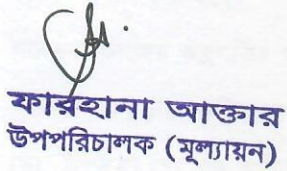 ফারহানা আক্তার
উপপরিচালক (মূল্যায়ন)